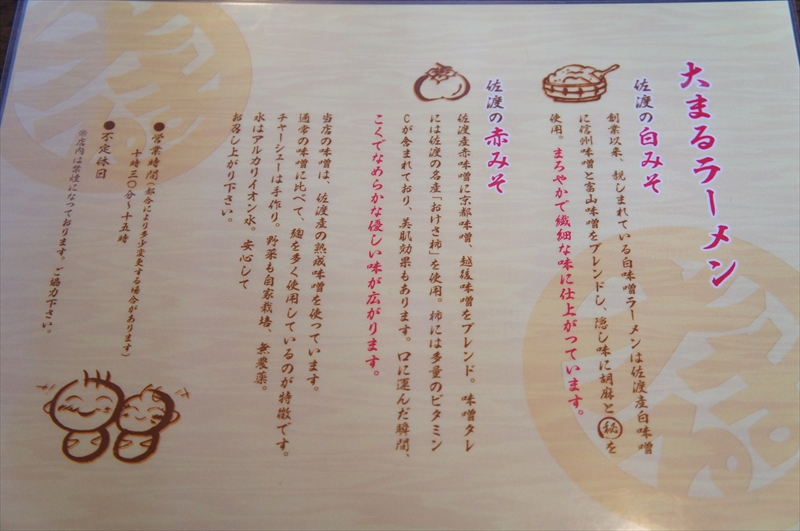 大まるラーメン
佐渡の白みそ
創業以来、親しまれている白味噌ラーメンは佐渡産白味噌
に信州味噌と富山味噌をブレンドし、隠し味に胡麻と㊙を
使用。まろやかで繊細な味に仕上がっています。
佐渡の赤みそ
佐渡産赤味噌に京都味噌、越後味噌をブレンド。味噌タレ
には佐渡の名産「おけさ柿」を使用。柿には多量のビタミン
Cが含まれており、美肌効果もあります。口に運んだ瞬間、
こくでなめらかな優しい味が広がります。
当店の味噌は、佐渡産の熟成味噌を使っています。
通常の味噌に比べて、麹を多く使用しているのが特徴です。
チャーシューは手作り。野菜も自家栽培、無農薬。
水はアルカリイオン水。安心して
お召し上がり下さい。
●営業時間(都合により多少変更する場合があります)
十時三〇分～十五時
●不定休日
※店内は禁煙になっております。ご協力下さい。